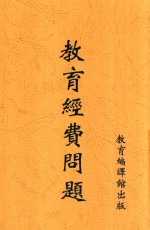 教育經費問題
教育編譯館出版